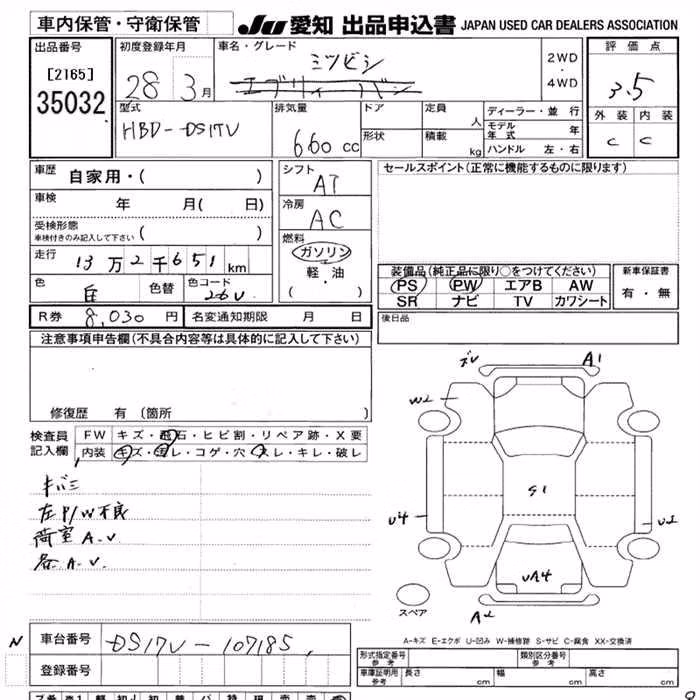 車内保管・守衛保管 JU 愛知 出品申込書 JAPAN USED CAR DEALERS ASSOCIATION
出品番号 初度登録年月 車名・グレード 評価点
[2165] 28 3月 ミツビシ 2WD・4WD 3.5
35032 エブリィ バン
型式 排気量 ドア 定員 人 ディーラー・並行 外装 内装
HBD-DS17V 660cc 形状 積載 kg モデル年式 年 C C
ハンドル 左・右
車歴 自家用・( ) シフト AT セールスポイント(正常に機能するものに限ります)
車検 年 月( 日) 冷房 AC
受検形態 ( )
車検付きのみ記入して下さい
走行 13万2千651km 燃料 ガソリン
軽・油
( ・ )
装備品(純正品に限り○をつけてください) 新車保証書
色 白 色替 色コード 26U PS PW エアB AW 有・無
SR ナビ TV カワシート
R券 8,030円 名変通知期限 月 日 後日品
注意事項申告欄(不具合内容等は具体的に記入して下さい)
修復歴 有(箇所 )
検査員記入欄 FW キズ・飛石・ヒビ割・リペア跡・X要
内装 キズ・汚レ・コゲ・穴・スレ・キレ・破レ
キバミ
左P/W不良
荷室A.U
各A.U
A1
W2
G1
U4
U2
UA4
スペア
A2
A-キズ E-エクボ U-凹み W-補修跡 S-サビ C-腐食 XX-交換済
N 車台番号 DS17V-107185
登録番号
形式指定番号 参考 類別区分番号 参考
車庫証明用 参考 長さ cm 幅 cm 高さ cm